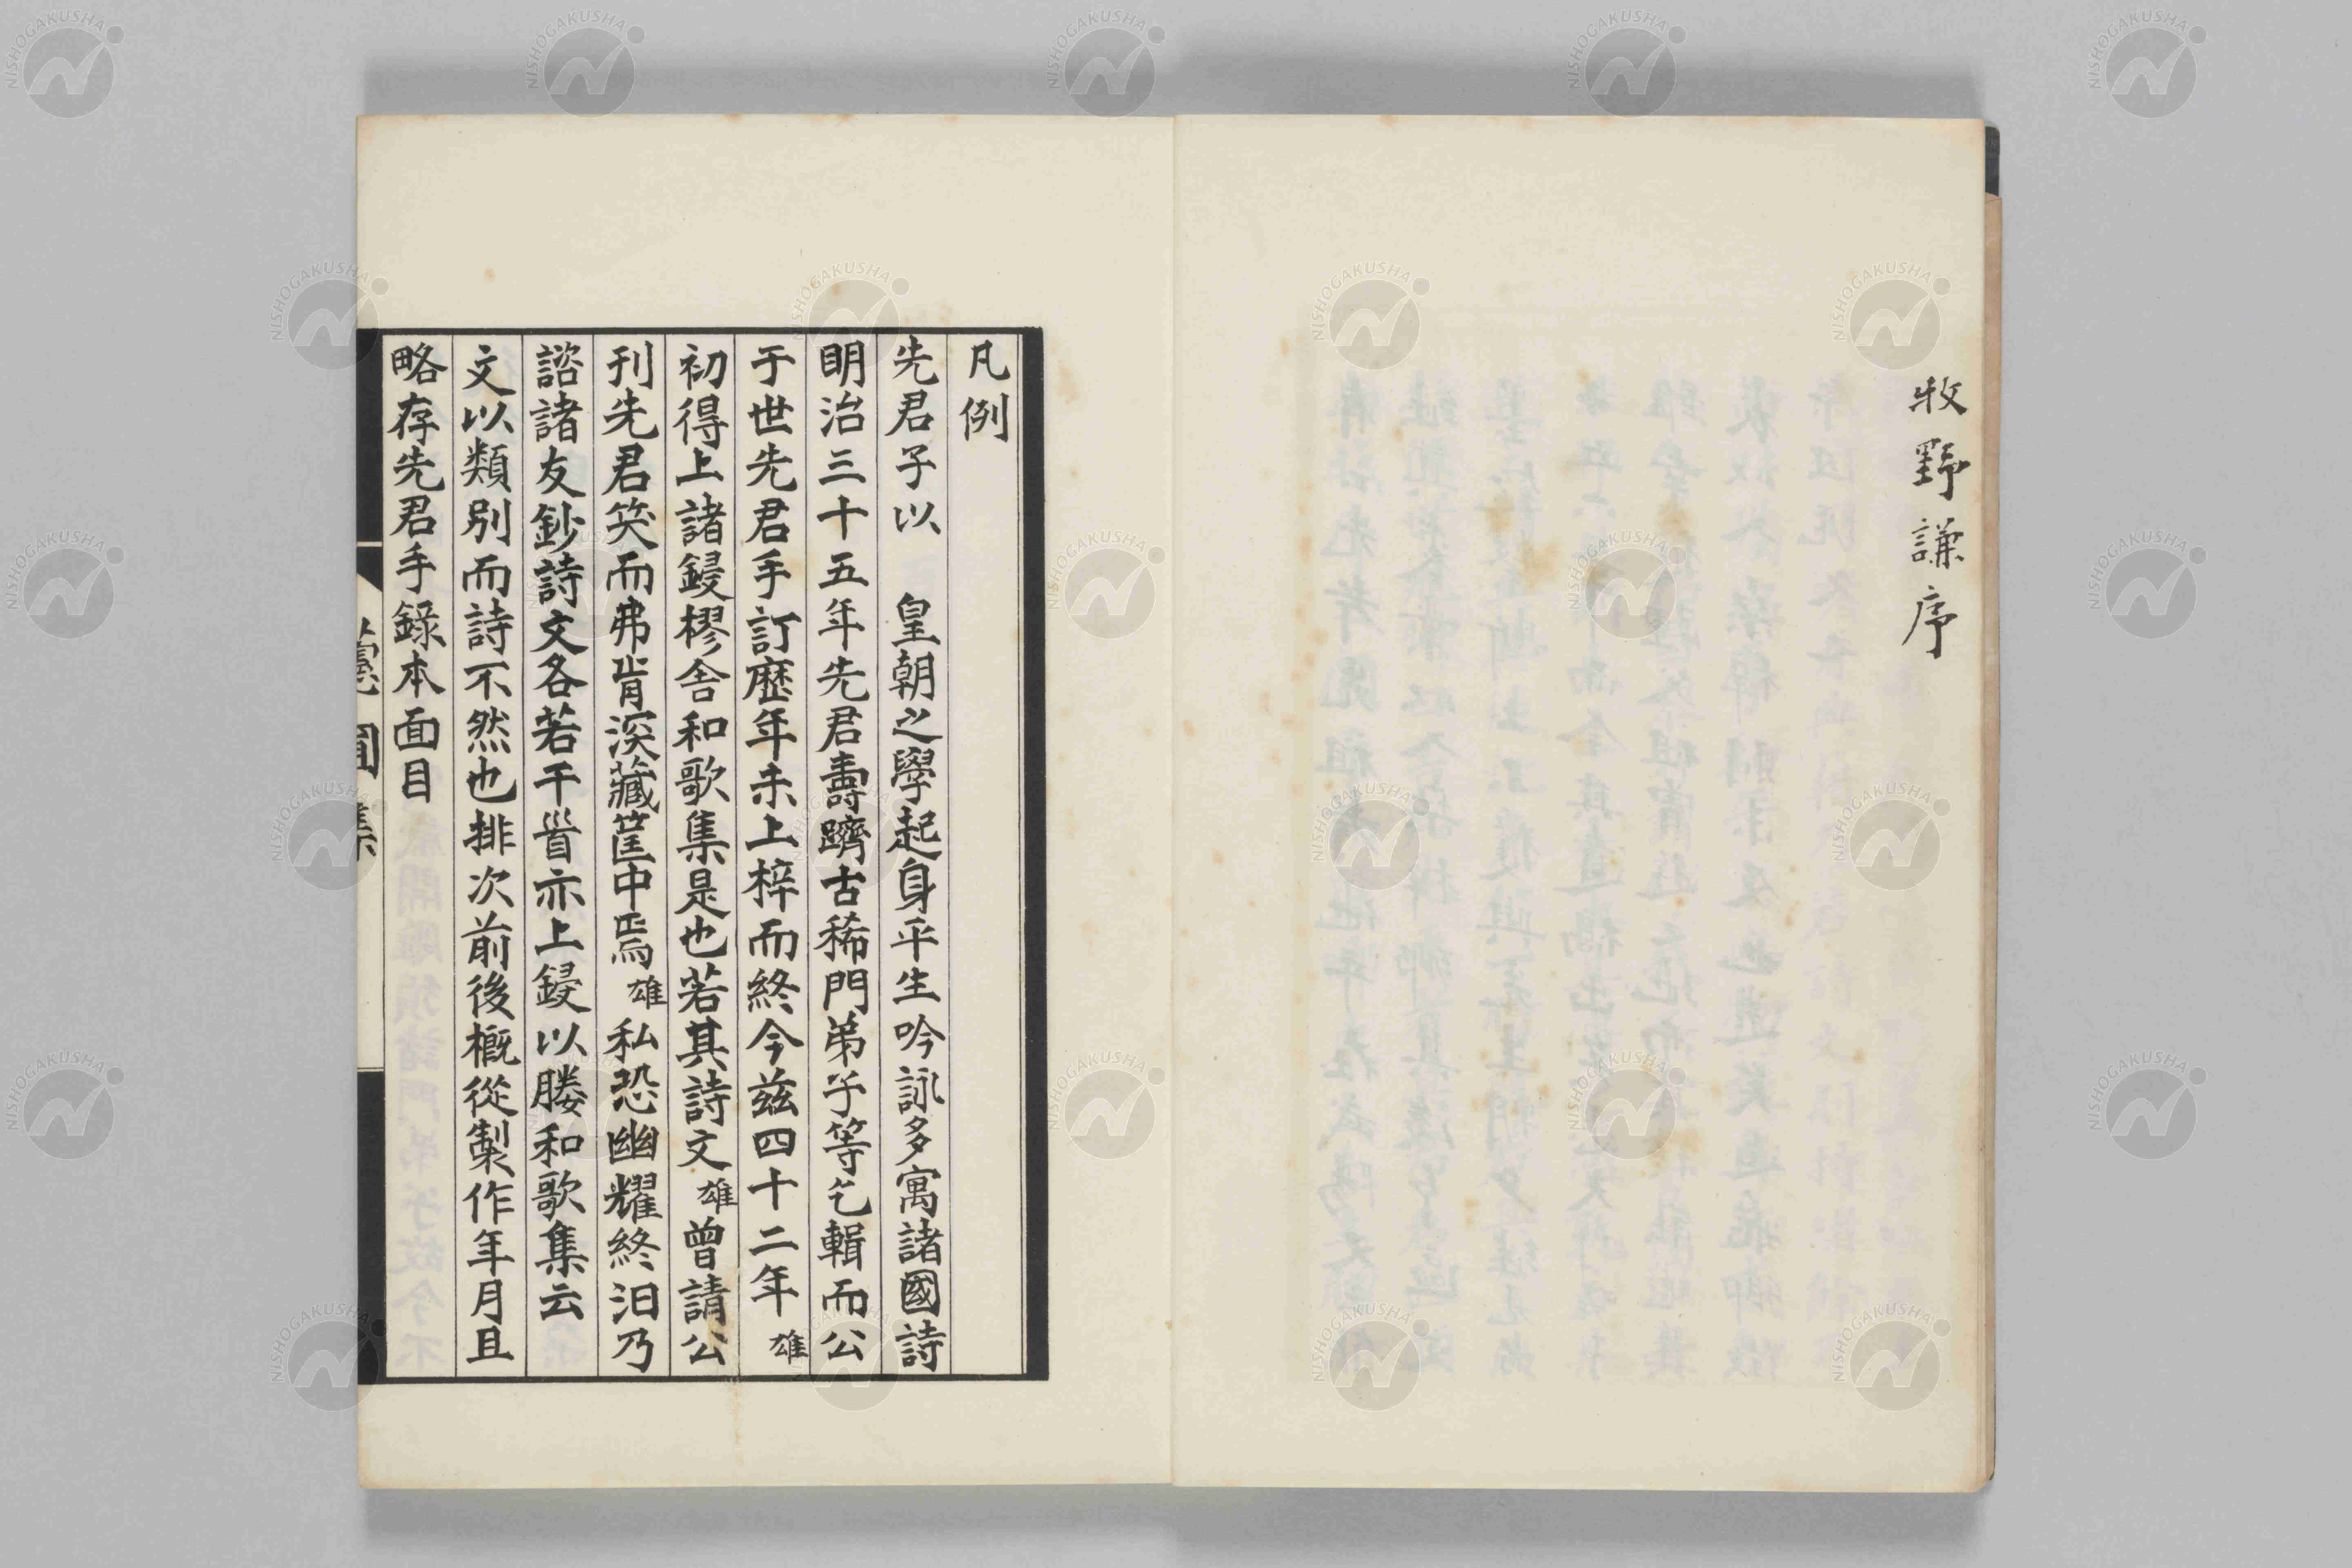 牧野謙序
凡例
先君子以　皇朝之學起身平生吟詠多寓諸國詩
明治三十五年先君壽躋古稀門弟子等乞輯而公
于世先君手訂歷年未上梓而終今茲四十二年雄
初得上諸鋟樛舎和歌集是也若其詩文雄曾請公
刊先君笑而弗肯深藏筐中焉雄私恐幽耀終汩乃
諮諸友鈔詩文各若干首亦上鋟以媵和歌集云
文以類別而詩不然也排次前後概從製作年月且
略存先君手錄本面目
集
NISHOGAKUSHA